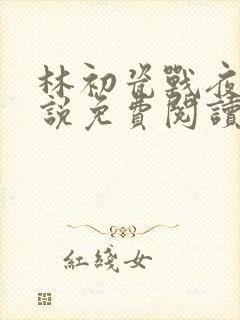 林初瓷戰夜
說免費閱讀
紅綫女